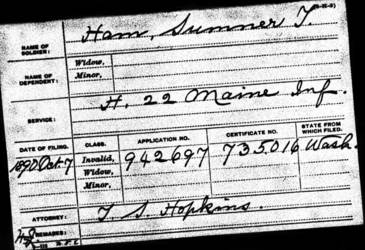 NAME OF SOLDIER: Ham, Sumner T.
NAME OF DEPENDENT: Widow,
Minor,
SERVICE: H. 22 Maine Inf.
DATE OF FILING. CLASS. APPLICATION NO. CERTIFICATE NO. STATE FROM WHICH FILED.
1890 Oct. 7 Invalid, 942697 735016 Wash.
Widow,
Minor,
ATTORNEY: T. S. Hopkins.
REMARKS: